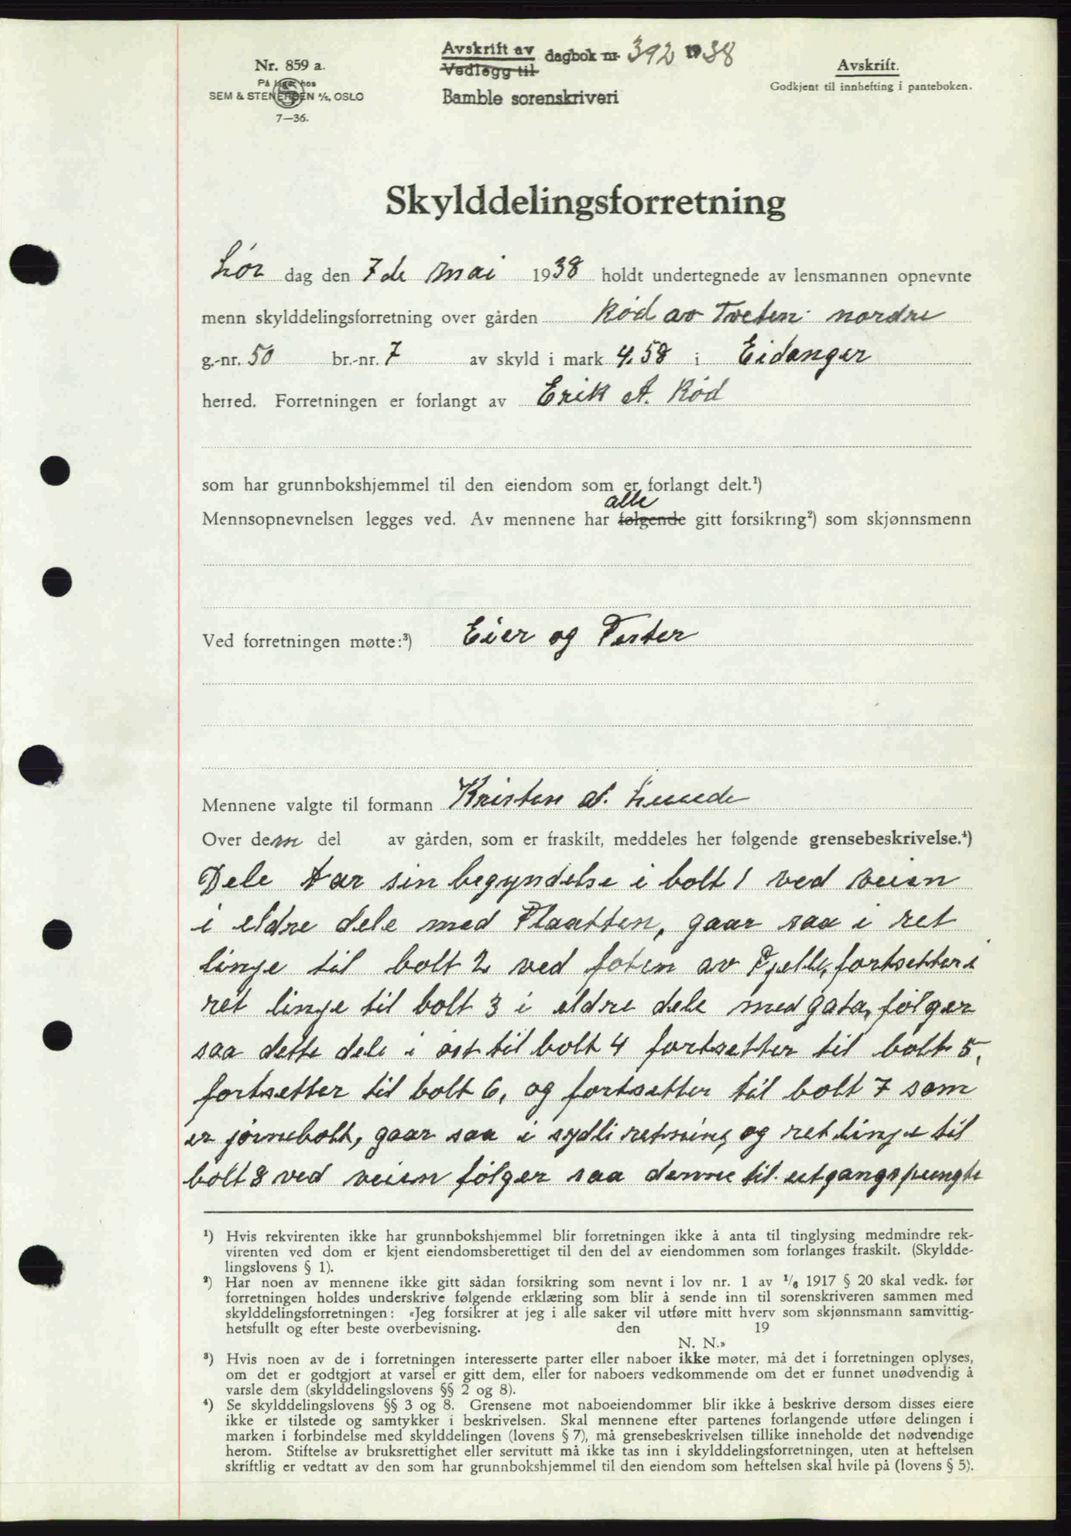 Nr. 859 a.
På lager hos
SEM & STENERSEN A/S, OSLO
7—36.
Avskrift av dagbok nr 392 1938
Vedlegg til
Bamble sorenskriveri
Avskrift.
Godkjent til innhefting i panteboken.
Skylddelingsforretning
Lør dag den 7de mai 1938 holdt undertegnede av lensmannen opnevnte
menn skylddelingsforretning over gården Rød av Tveten nordre
g.-nr. 50 br.-nr. 7 av skyld i mark 4.58 i Eidanger
herred. Forretningen er forlangt av Erik A. Rød
som har grunnbokshjemmel til den eiendom som er forlangt delt.¹)
alle
Mennsopnevnelsen legges ved. Av mennene har følgende gitt forsikring²) som skjønnsmenn
Ved forretningen møtte:³) Eier og Fester
Mennene valgte til formann Kristen A.
Over dem del av gården, som er fraskilt, meddeles her følgende grensebeskrivelse.⁴)
Dele tar sin begyndelse i bolt 1 ved veien
i eldre dele med Plaatten, gaar saa i ret
linje til bolt 2 ved foten av Fjelle, fortsetter i
ret linje til bolt 3 i eldre dele med gata, følger
saa dette dele i øst til bolt 4 fortsetter til bolt 5,
fortsetter til bolt 6, og fortsetter til bolt 7 som
er jørnebolt, gaar saa i sydli retning og ret linje til
bolt 8 ved veien følger saa denne til utgangspungte
¹) Hvis rekvirenten ikke har grunnbokshjemmel blir forretningen ikke å anta til tinglysing medmindre rek-
virenten ved dom er kjent eiendomsberettiget til den del av eiendommen som forlanges fraskilt. (Skyldde-
lingslovens § 1).
²) Har noen av mennene ikke gitt sådan forsikring som nevnt i lov nr. 1 av 1/6 1917 § 20 skal vedk. før
forretningen holdes underskrive følgende erklæring som blir å sende inn til sorenskriveren sammen med
skylddelingsforretningen: «Jeg forsikrer at jeg i alle saker vil utføre mitt hverv som skjønnsmann samvittig-
hetsfullt og efter beste overbevisning. den 19
N. N.»
³) Hvis noen av de i forretningen interesserte parter eller naboer ikke møter, må det i forretningen oplyses,
om det er godtgjort at varsel er gitt dem, eller for naboers vedkommende om det er funnet unødvendig å
varsle dem (skylddelingslovens §§ 2 og 8).
⁴) Se skylddelingslovens §§ 3 og 8. Grensene mot naboeiendommer blir ikke å beskrive dersom disses eiere
ikke er tilstede og samtykker i beskrivelsen. Skal mennene efter partenes forlangende utføre delingen i
marken i forbindelse med skylddelingen (lovens § 7), må grensebeskrivelsen tillike inneholde det nødvendige
herom. Stiftelse av bruksrettighet eller servitutt må ikke tas inn i skylddelingsforretningen, uten at heftelsen
skriftlig er vedtatt av den som har grunnbokshjemmel til den eiendom som heftelsen skal hvile på (lovens § 5).